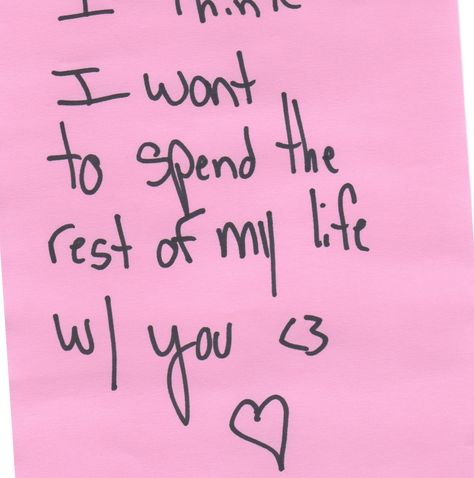 I think
I want
to spend the
rest of my life
w/ you <3